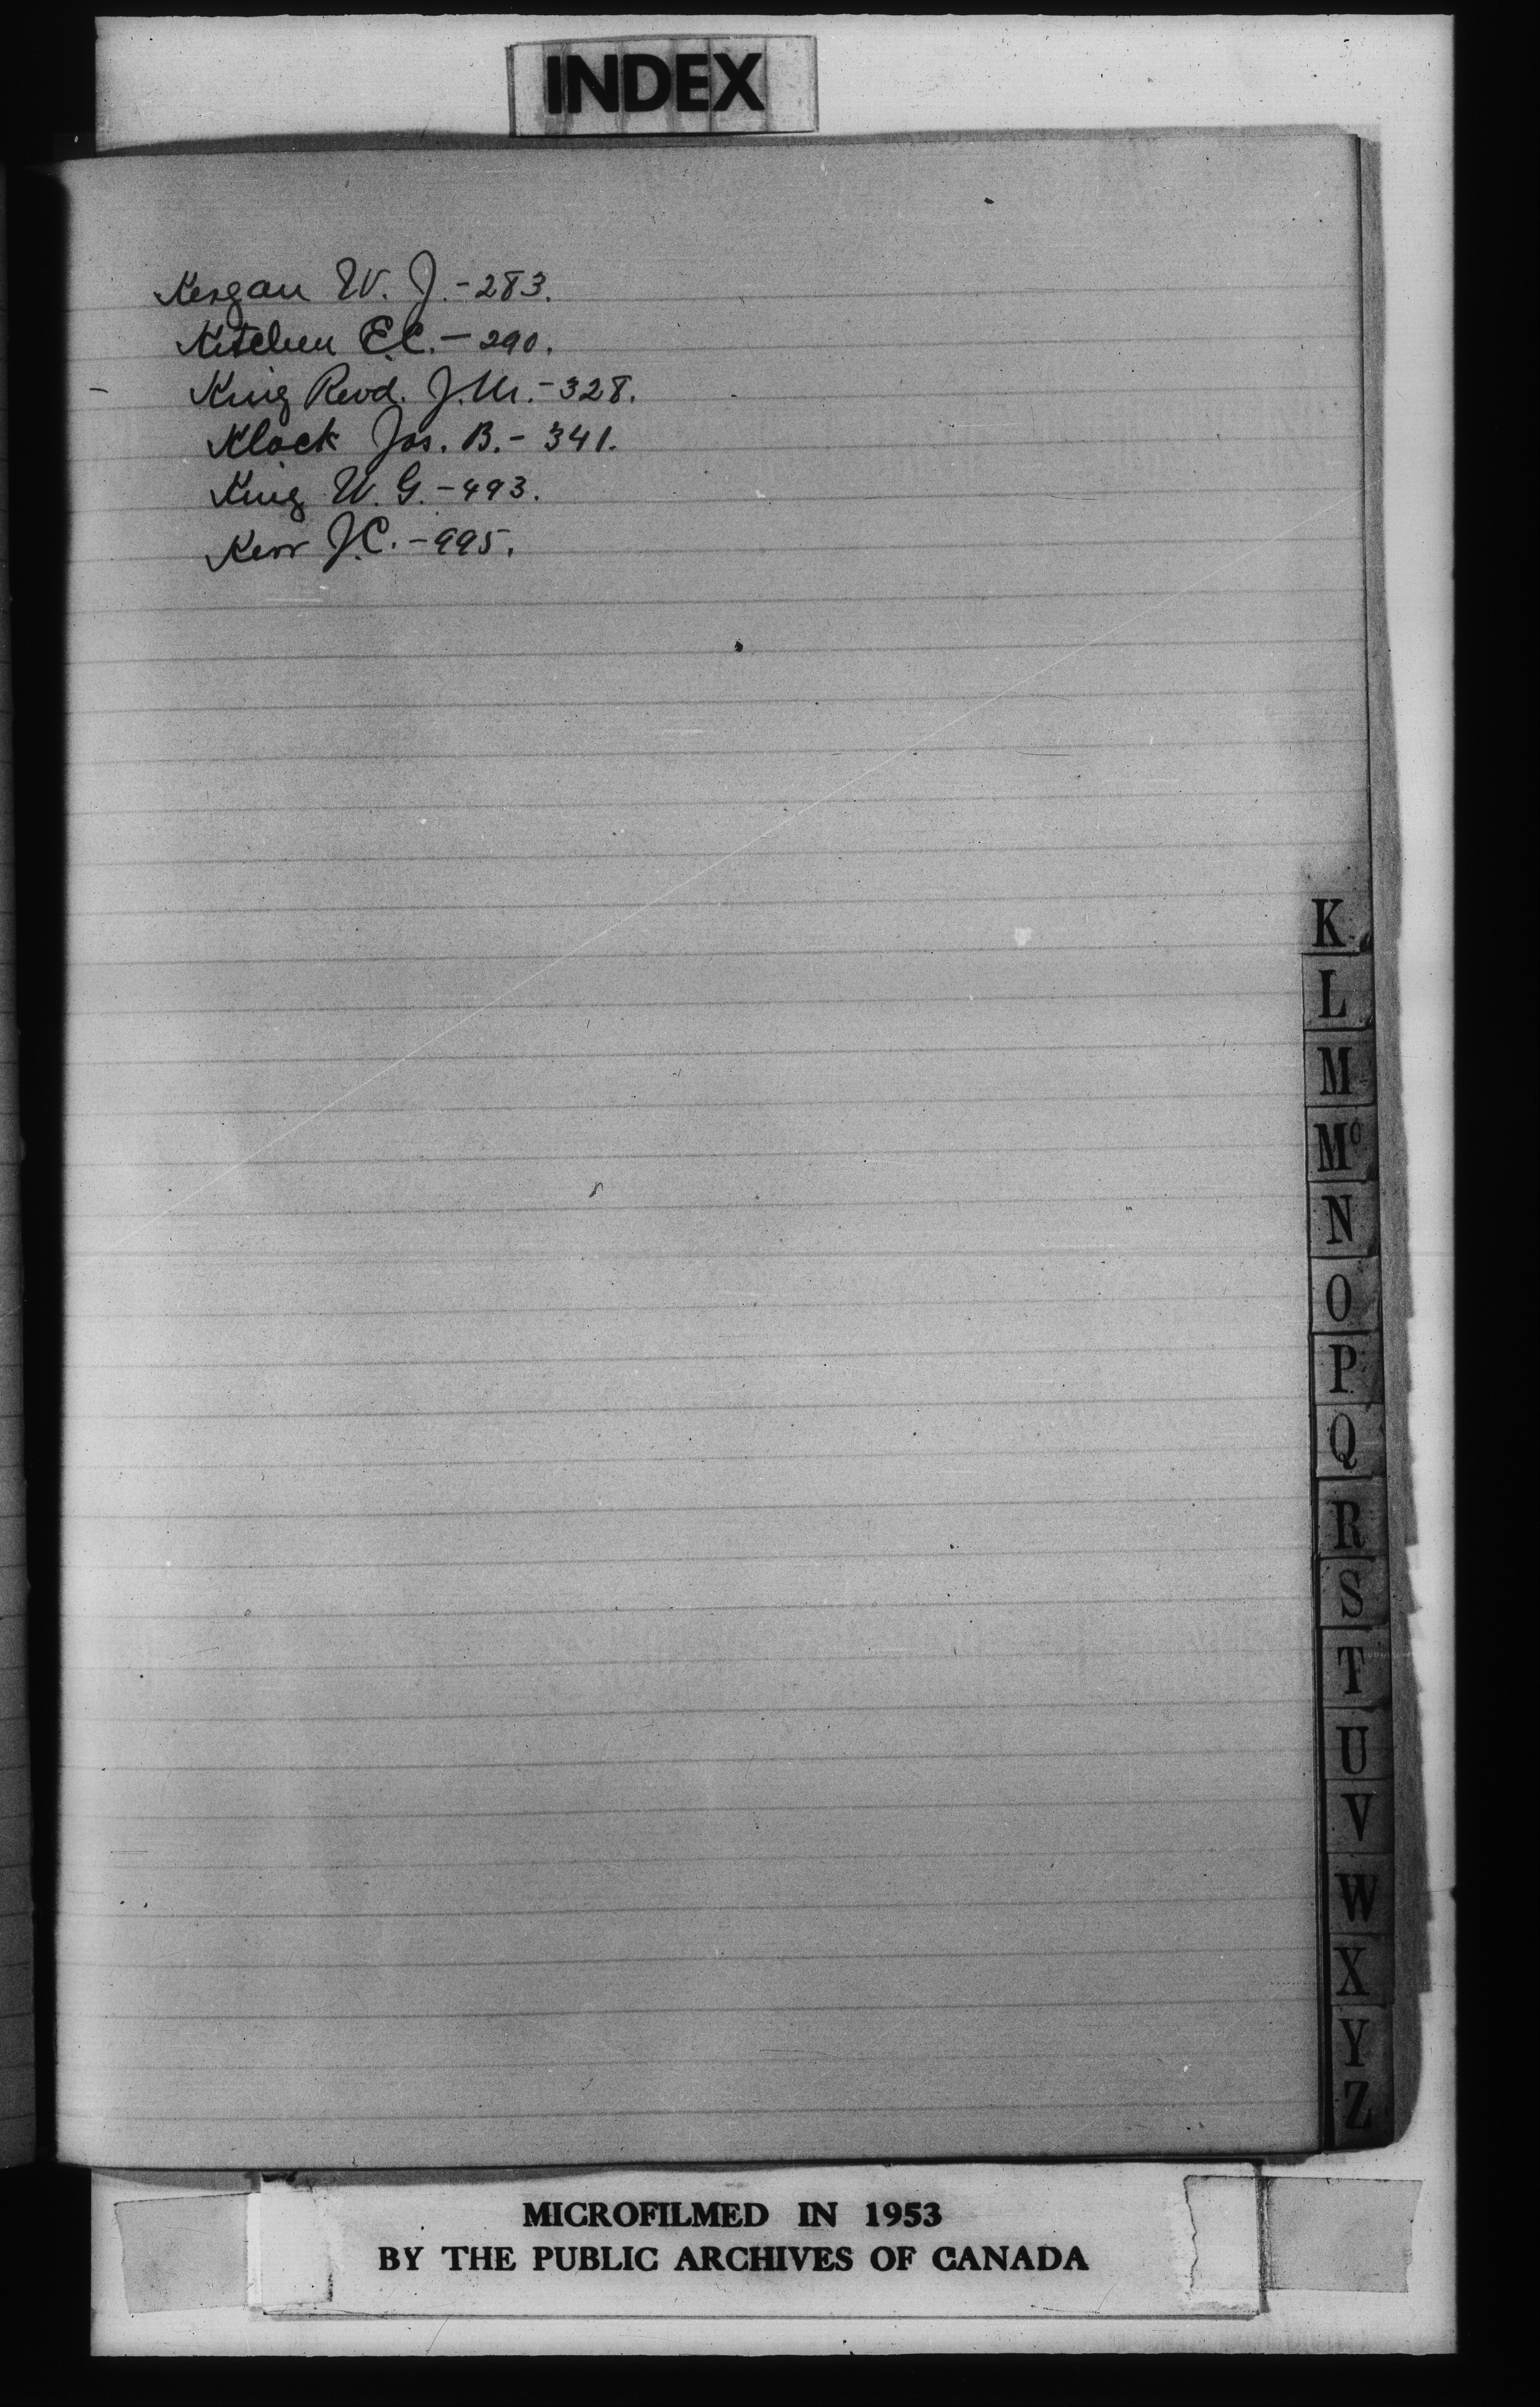 INDEX
Kergan W. J. - 283.
Kitchen E.C. - 290.
- King Revd. J.M. - 328.
Klock Jas. B. - 341.
King W. G. - 493.
Kerr J.C. - 995.
K
L
M
Mc
N
O
P
Q
R
S
T
U
V
W
X
Y
Z
MICROFILMED IN 1953
BY THE PUBLIC ARCHIVES OF CANADA